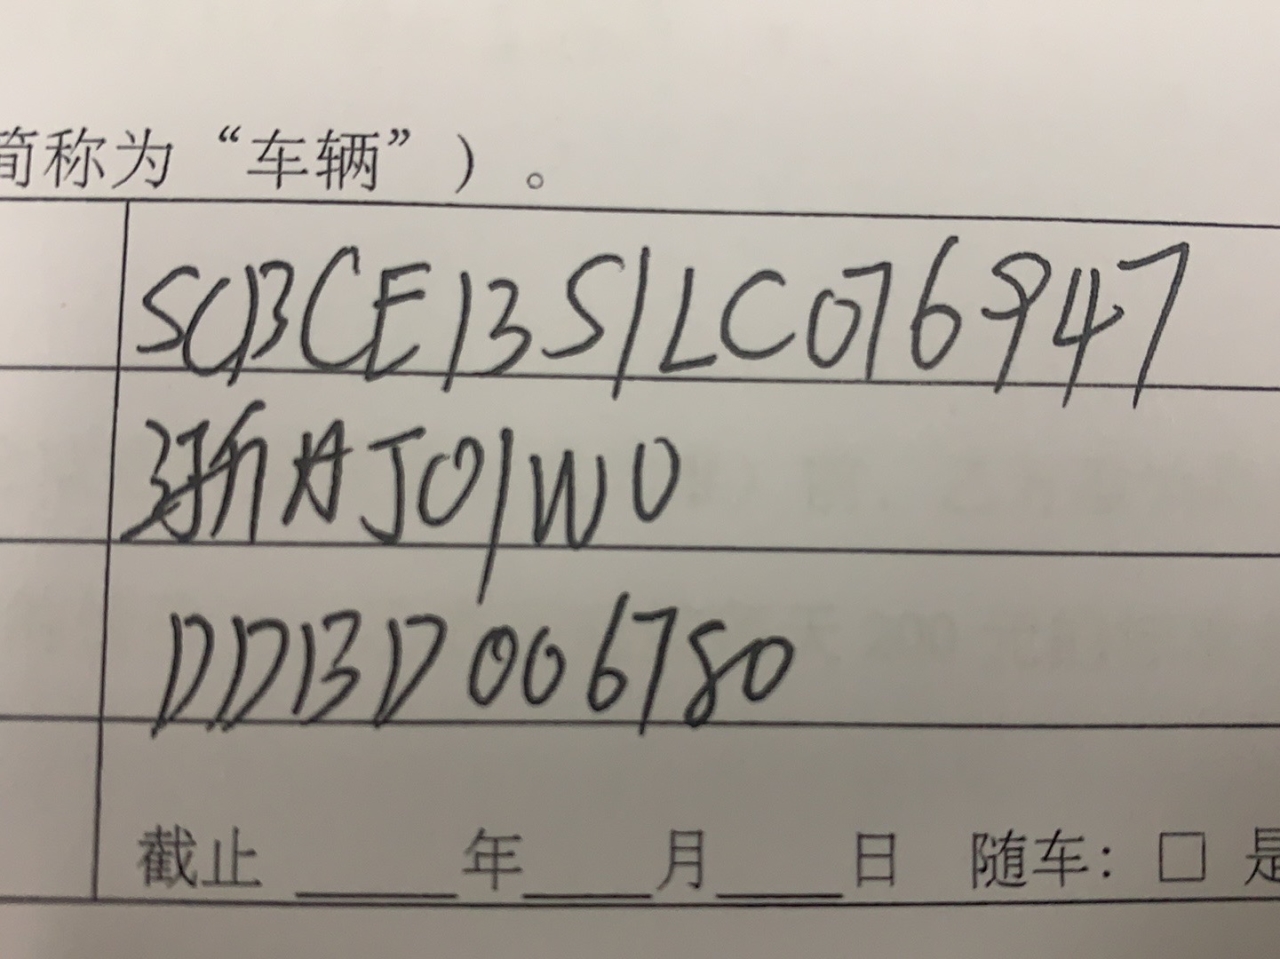 简称为“车辆”）。
SCBCE13S1LC076947
浙AJ01W0
DDBD006780
截止 ____年____月____日 随车：□ 是